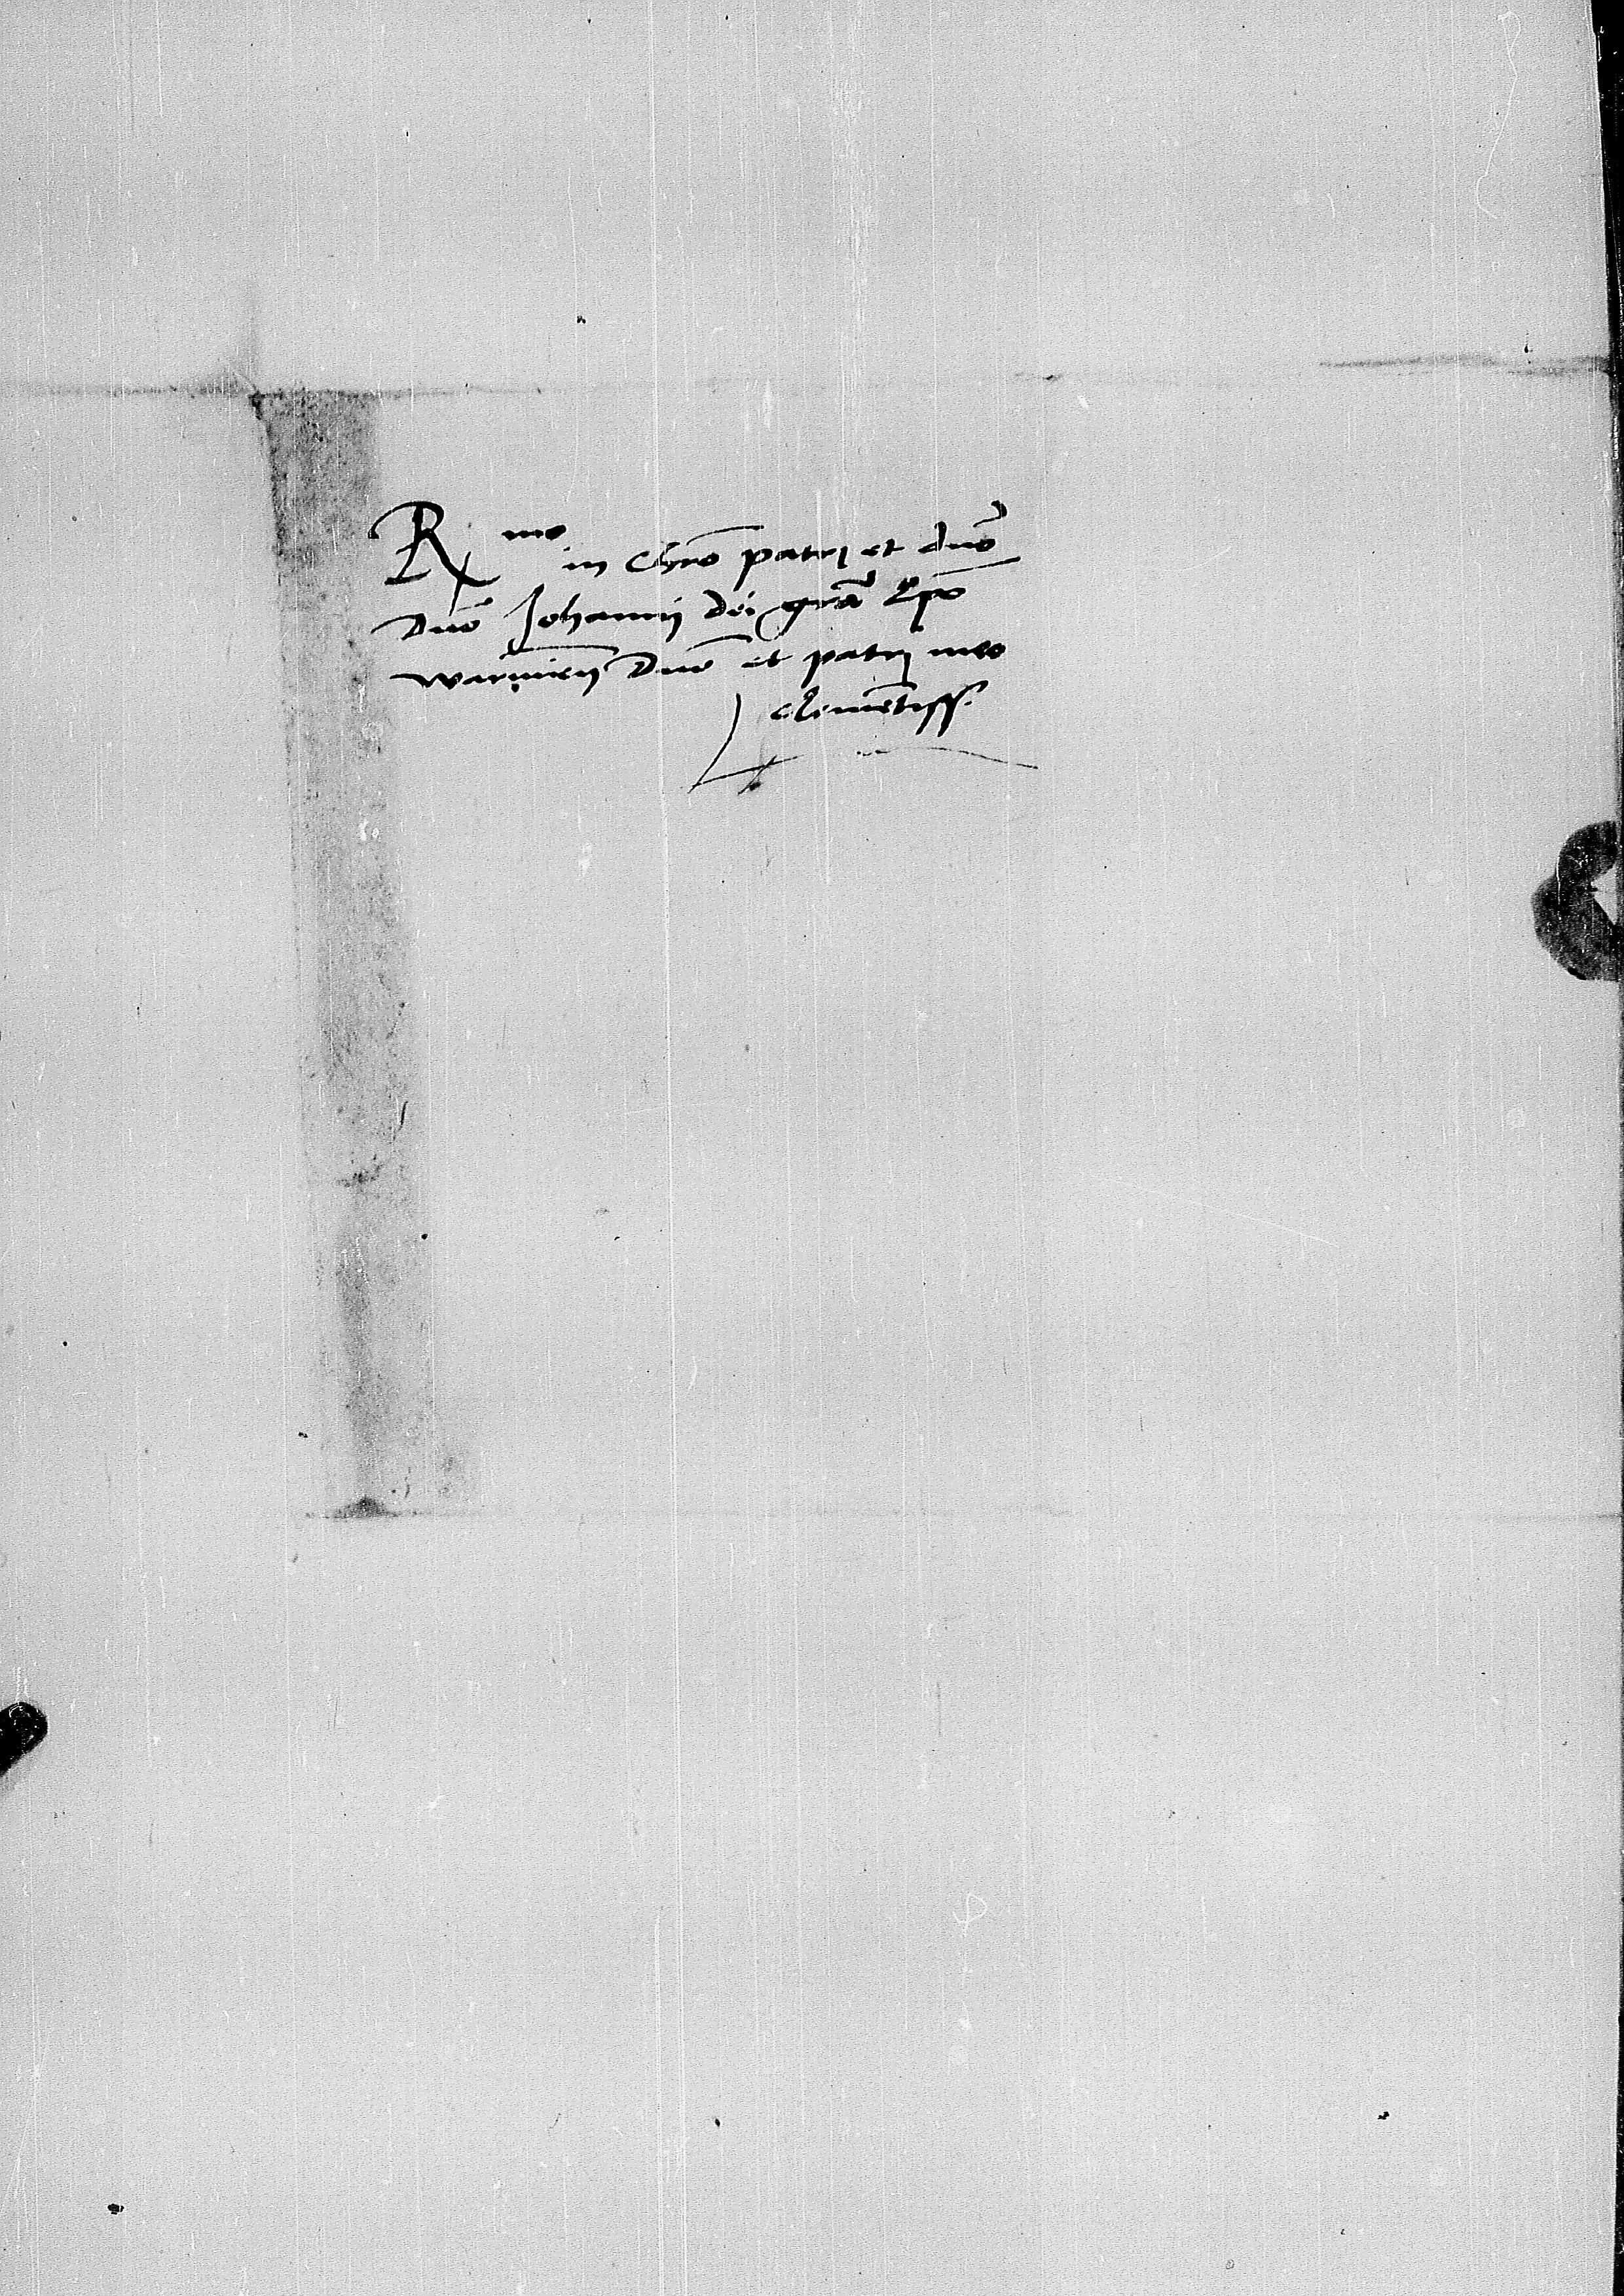 R mo in Chro patri et dno
Dno Johanni dei gra Epo
warmien Dno et patri meo
clementiss.